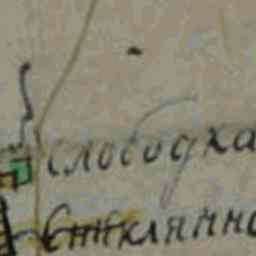 слободка
Стклянно